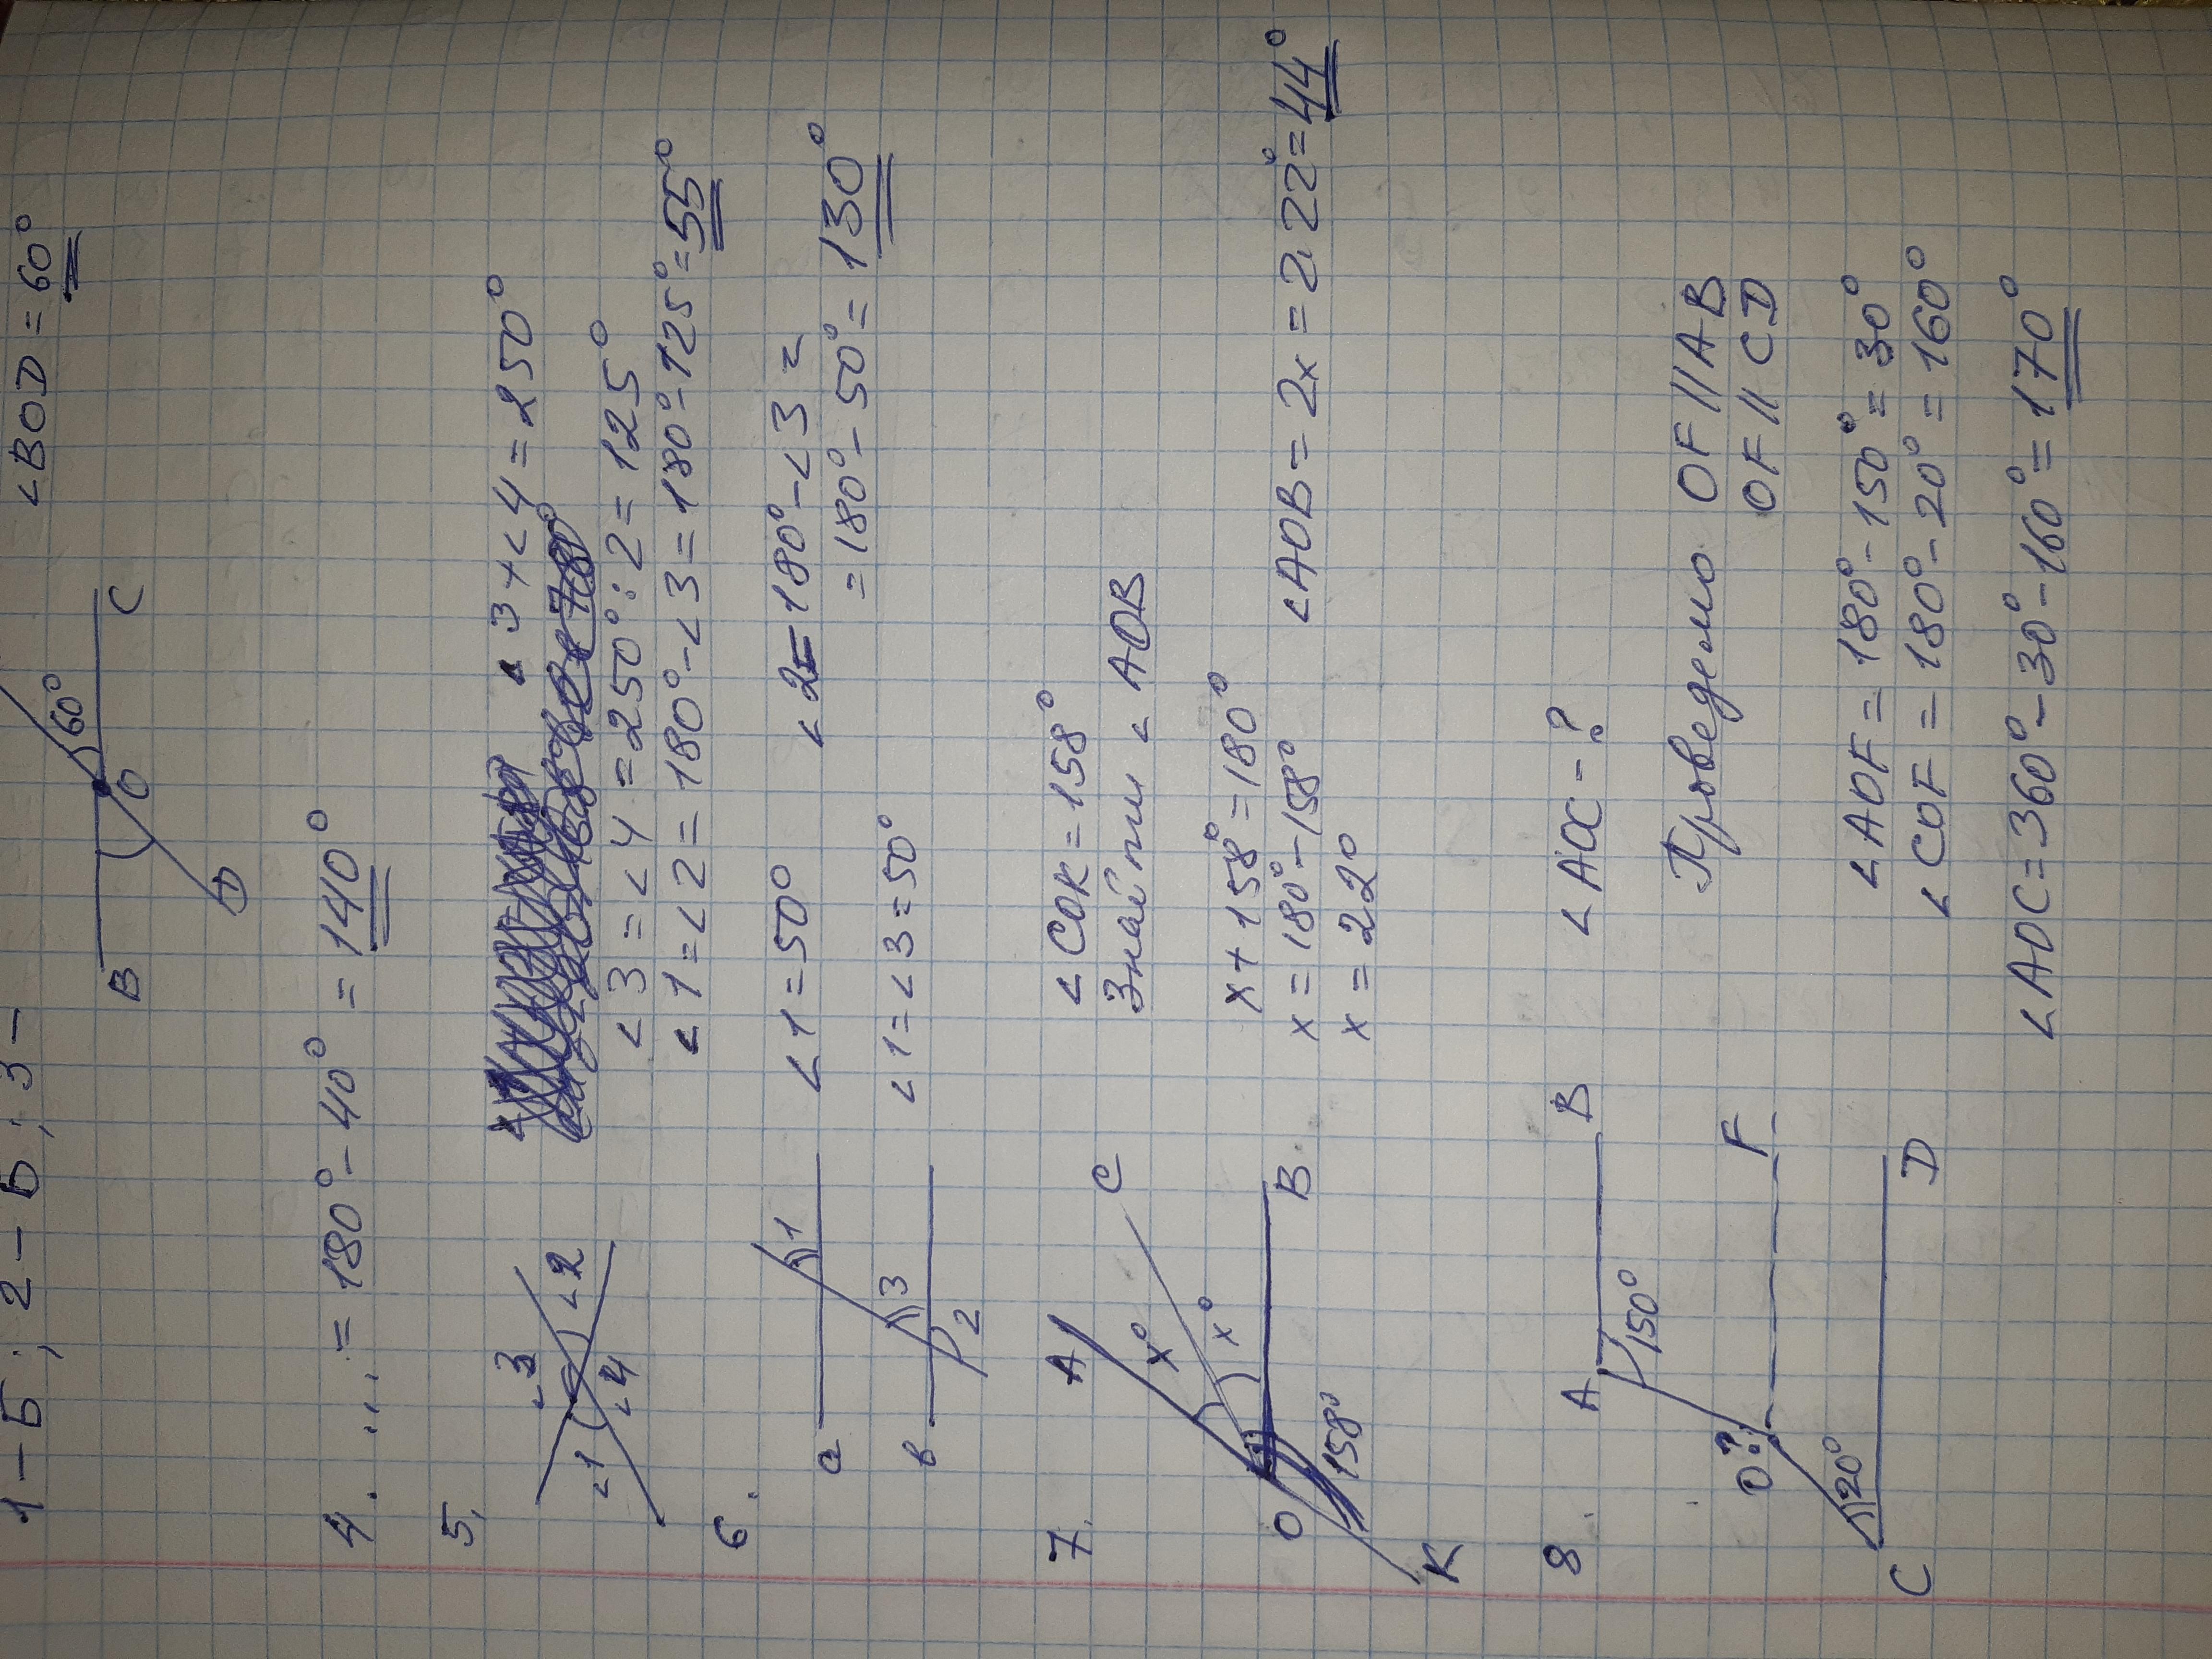 1 - Б ; 2 - Б ; 3 -
B 60° O C D
∠BOD = 60°
4. ... = 180° - 40° = 140°
5.
∠3 ∠1 ∠2 ∠4
∠3 + ∠4 = 250°
∠3 = ∠4 = 250° : 2 = 125°
∠1 = ∠2 = 180° - ∠3 = 180° - 125° = 55°
6.
a 1
в 3 2
∠1 = 50°
∠1 = ∠3 = 50°
∠2 = 180° - ∠3 =
= 180° - 50° = 130°
7.
A C x° x° O B 158° K
∠COK = 158°
Знайти ∠AOB
x + 158° = 180°
x = 180° - 158°
x = 22°
∠AOB = 2x = 2·22° = 44°
8.
A B 150° O ? F 20° C D
∠AOC - ?
Проведемо OF // AB
OF // CD
∠AOF = 180° - 150° = 30°
∠COF = 180° - 20° = 160°
∠AOC = 360° - 30° - 160° = 170°